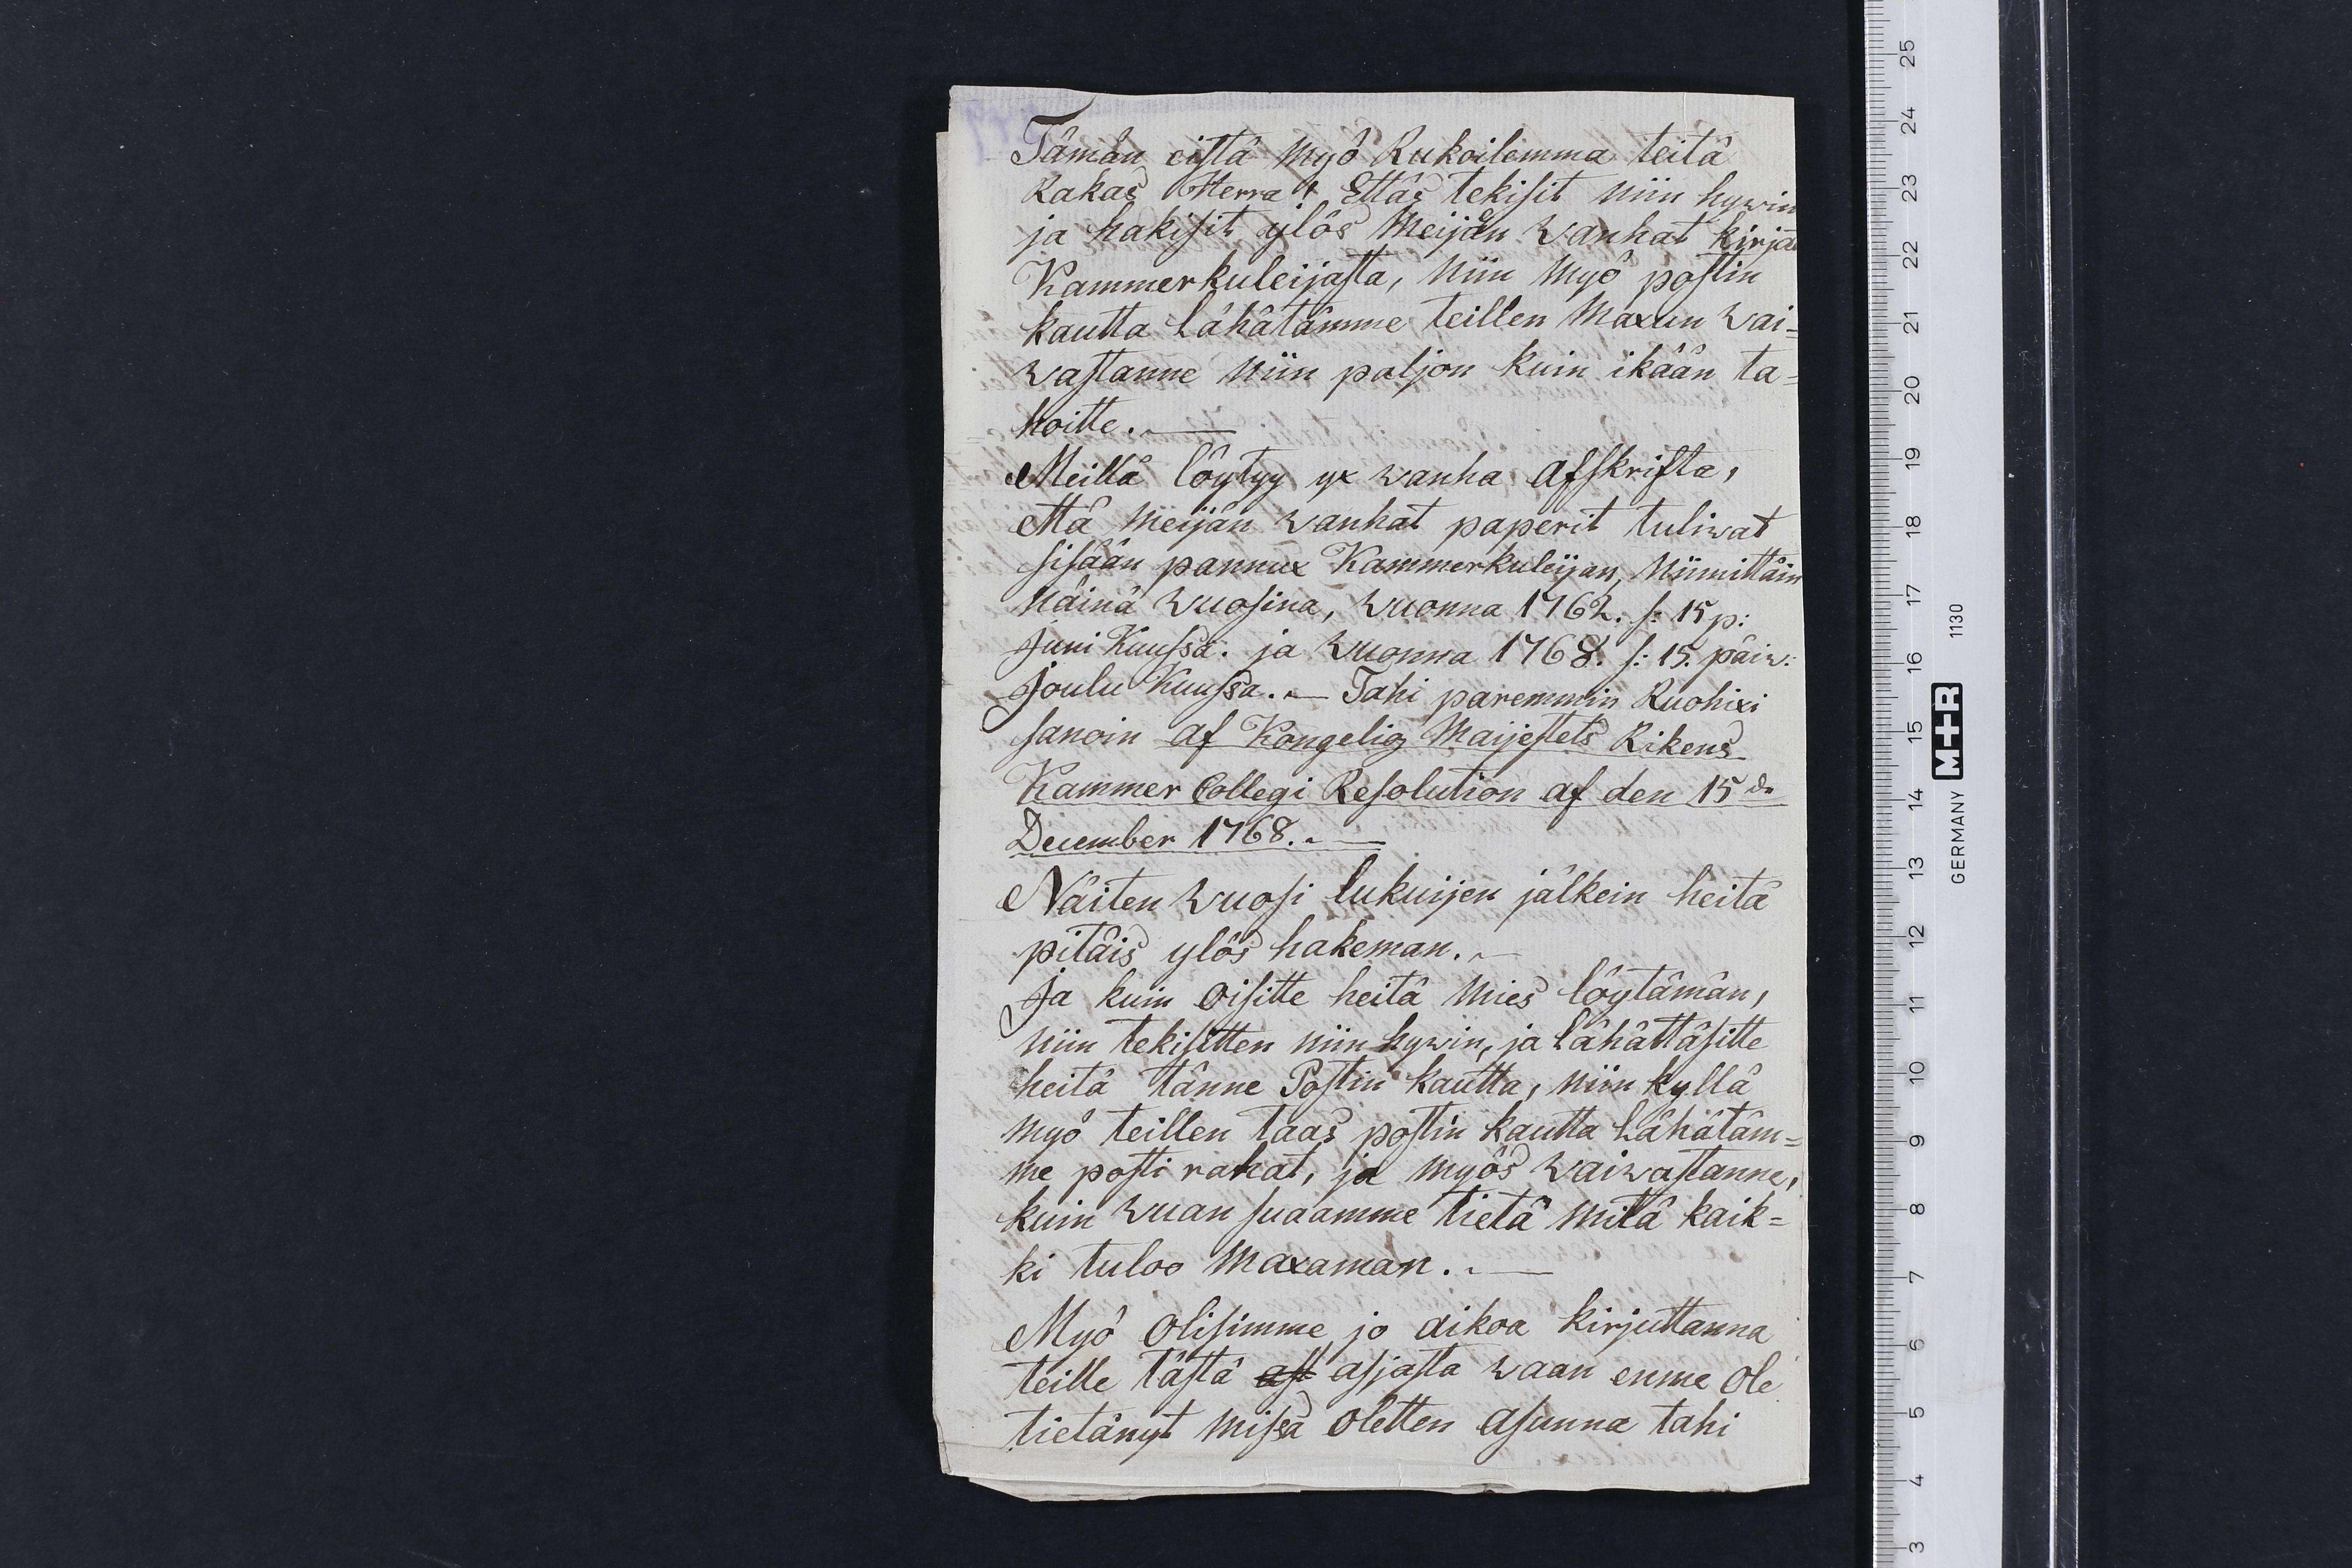 Tämän eistä myö Rukoilemma teitä
Rakas Herra! Ettäs tekisit niin hywin
ja hakisit ylös Meijän Wanhat kirjat
Kammerkuleijasta, niin myö postin
kautta Lähätämme teillen Maxun Wai=
wastanne niin paljon kuin ikään ta=
hoitte.
Meillä löytyy yx wanha afskrifta,
että meijän wanhat paperit tuliwat
sisään pannux Kammerkuleijan, Niimittäin
Näinä wuosina, wuonna 1762. s: 15 p:
Juni Kuussa. ja Wuonna 1768. s: 15. päiw:
Joulu Kuussa. — Tahi paremmin Ruohixi
sanoin af Kongelig Maijestets Rikens
Kammer Collegi Resolution af den 15 d.
December 1768.
Näiten wuosi lukuijen jälkein heitä
pitäis ylös hakeman.
Ja kuin oisitte heitä mies löytämän,
niin tekisitten niin hywin, ja Lähättäsitte
heitä tänne Postin kautta, niin kyllä
myö teillen taas postin kautta Lähätäm=
me posti rahat, ja myös waiwastanne,
kuin wuan suaamme tietä mitä kaik=
ki tuloo Maxaman.
Myö Olisimme jo aikoa kirjuttanna
teille tästä ast asjasta waan emme Ole
tietänyt missä Oletten asunna tahi
25
24
23
22
21
20
19
18
17
16
15
14
13
12
11
10
9
8
7
6
5
4
3
GERMANY M+R 1130